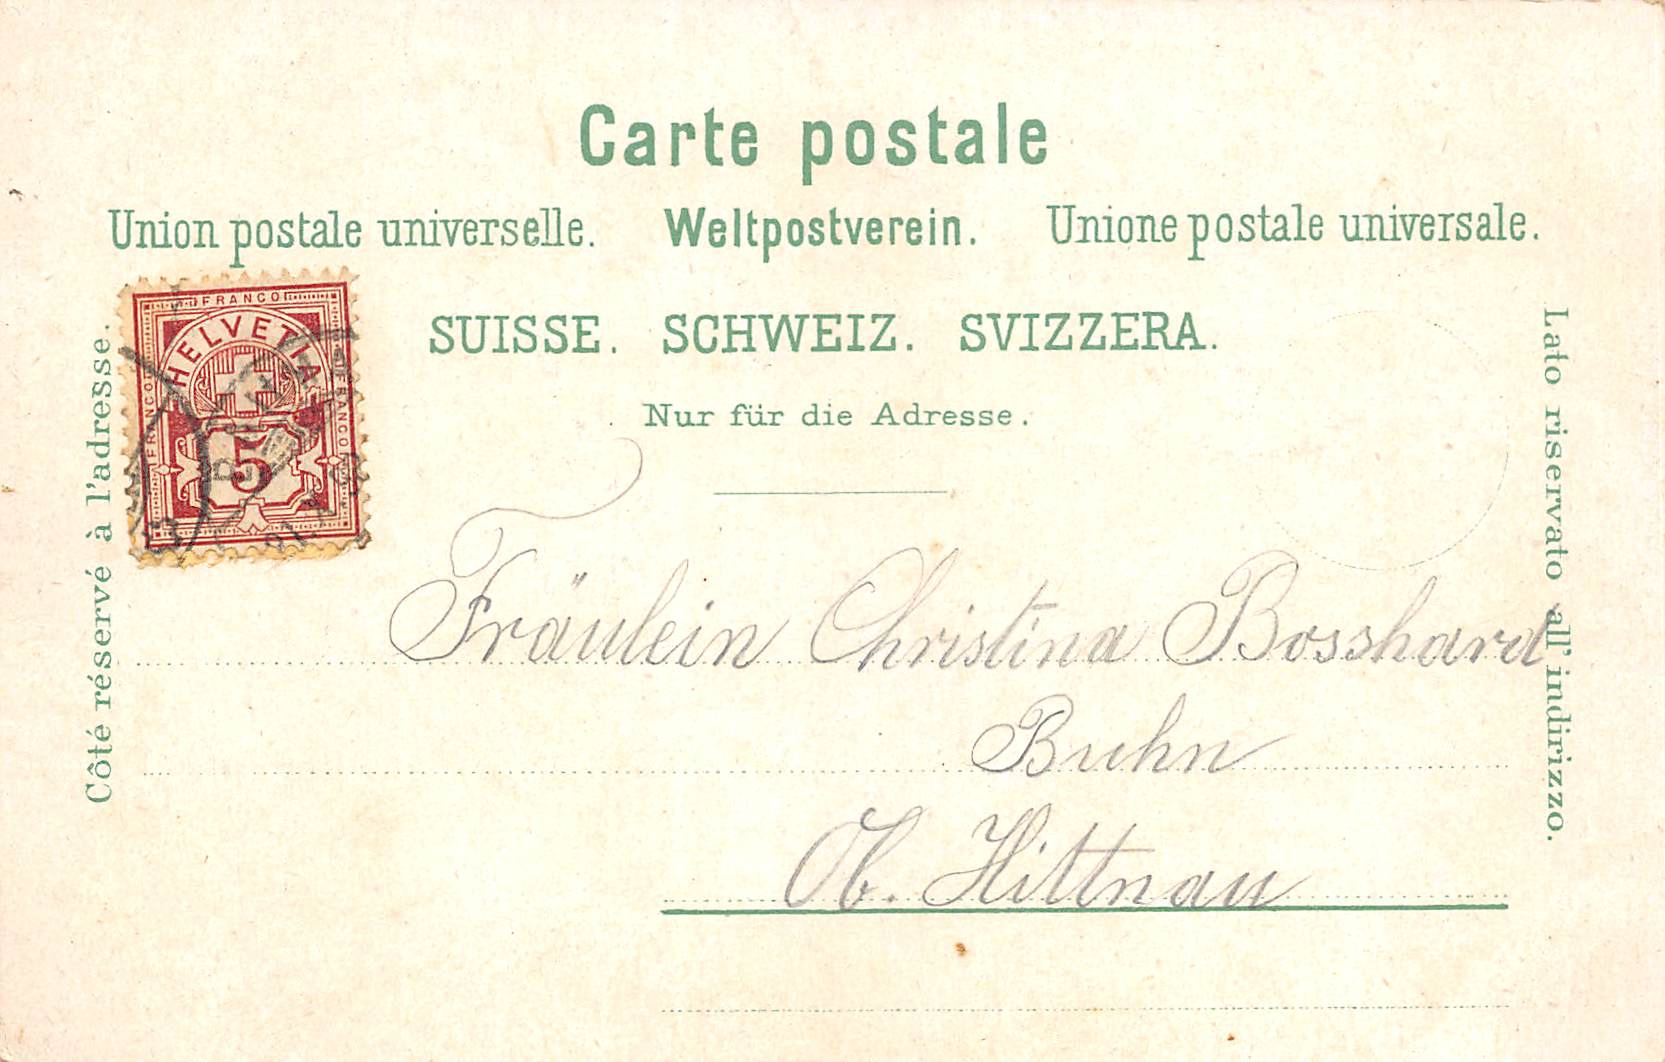 Carte postale
Union postale universelle. Weltpostverein. Unione postale universale.
SUISSE. SCHWEIZ. SVIZZERA.
Nur für die Adresse.
Côté réservé à l'adresse.
Lato riservato all' indirizzo.
FRANCO
FRANCO
FRANCO
HELVETIA
5
Fräulein Christina Bosshard
Buhn
Ob. Hittnau